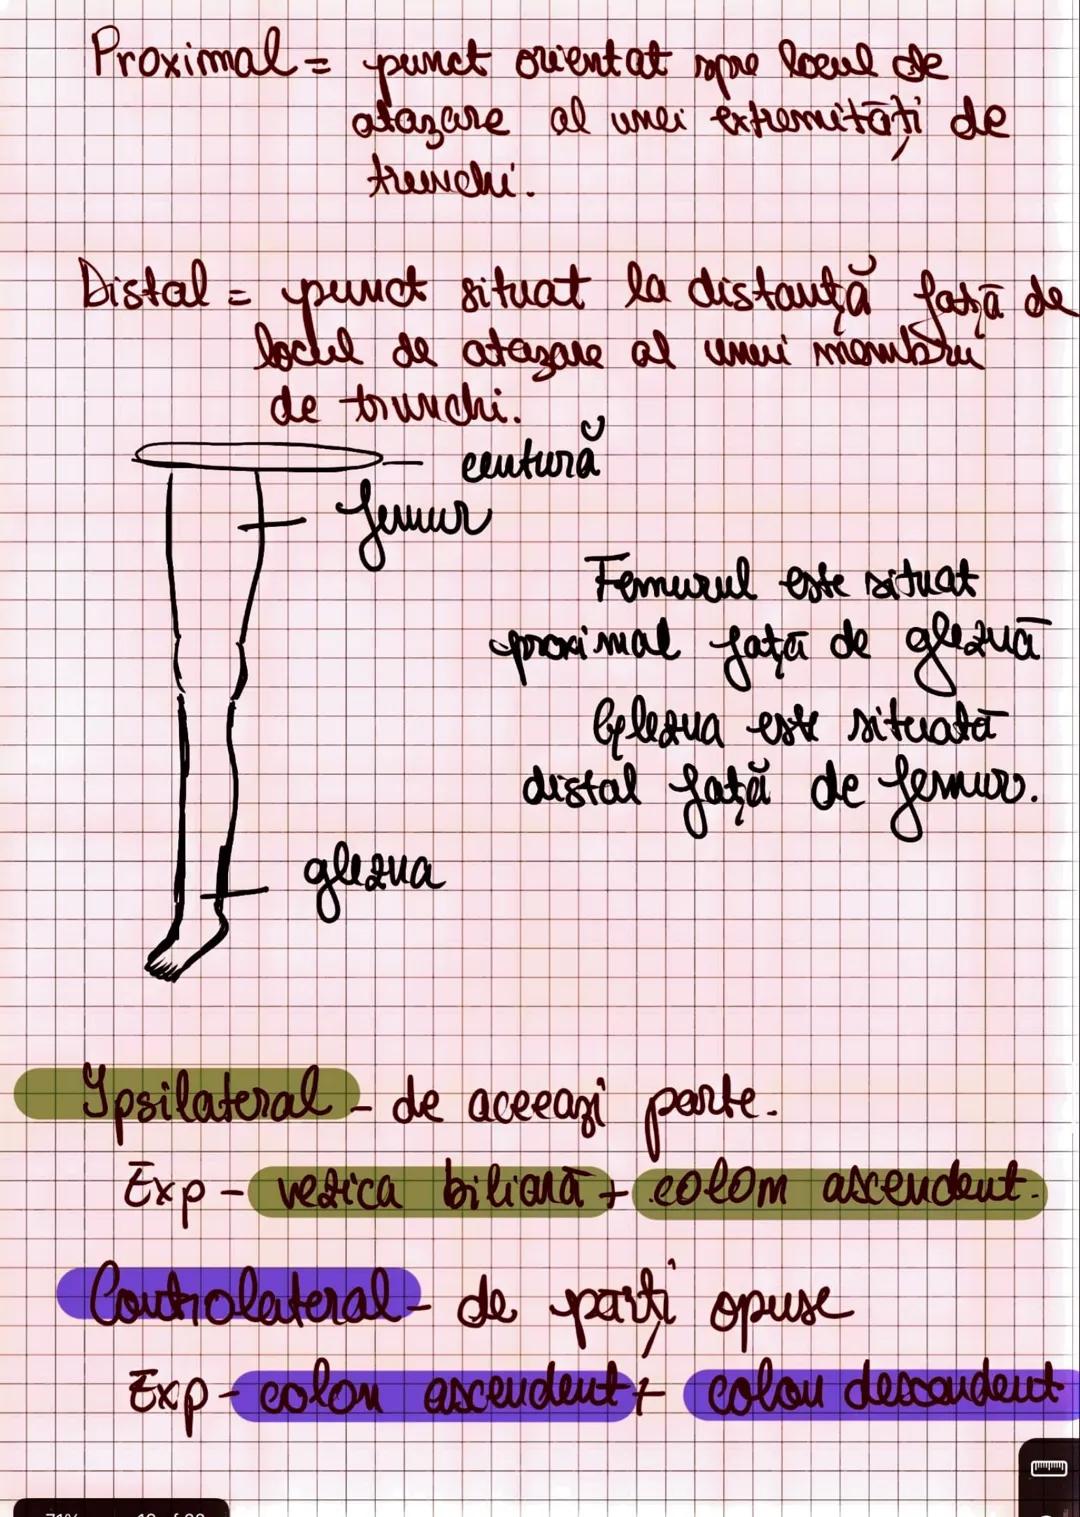 Proximal = punct orientat spre locul de
atazare al unei extremități de
trunchi.
Distal = punct situat la distanță față de
locul de atazare al unui membru
de trunchi.
centură
femur
Femurul este situat
proximal față de gleznă
Glezna este situată
distal față de femur.
glezna
Ipsilateral - de aceeazi parte.
Exp - vezica biliară + colom ascendent.
Controlateral - de părți opuse
Exp - colon ascendent + colon descendent